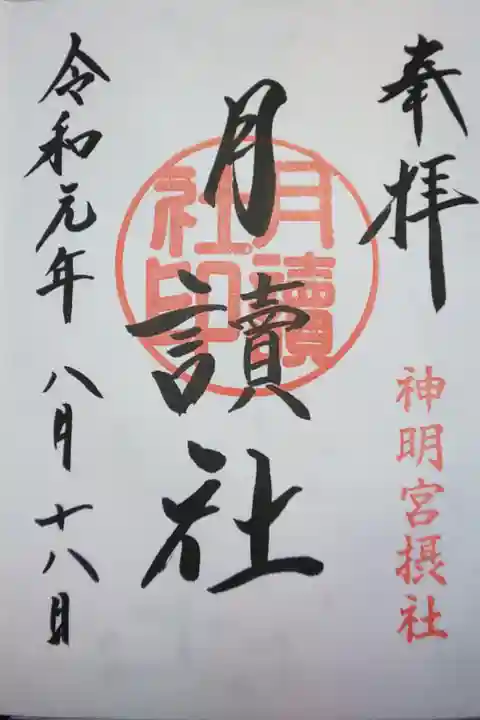 奉拝
神明宮摂社
月讀社
月讀
社印
令和元年 八月 十八日